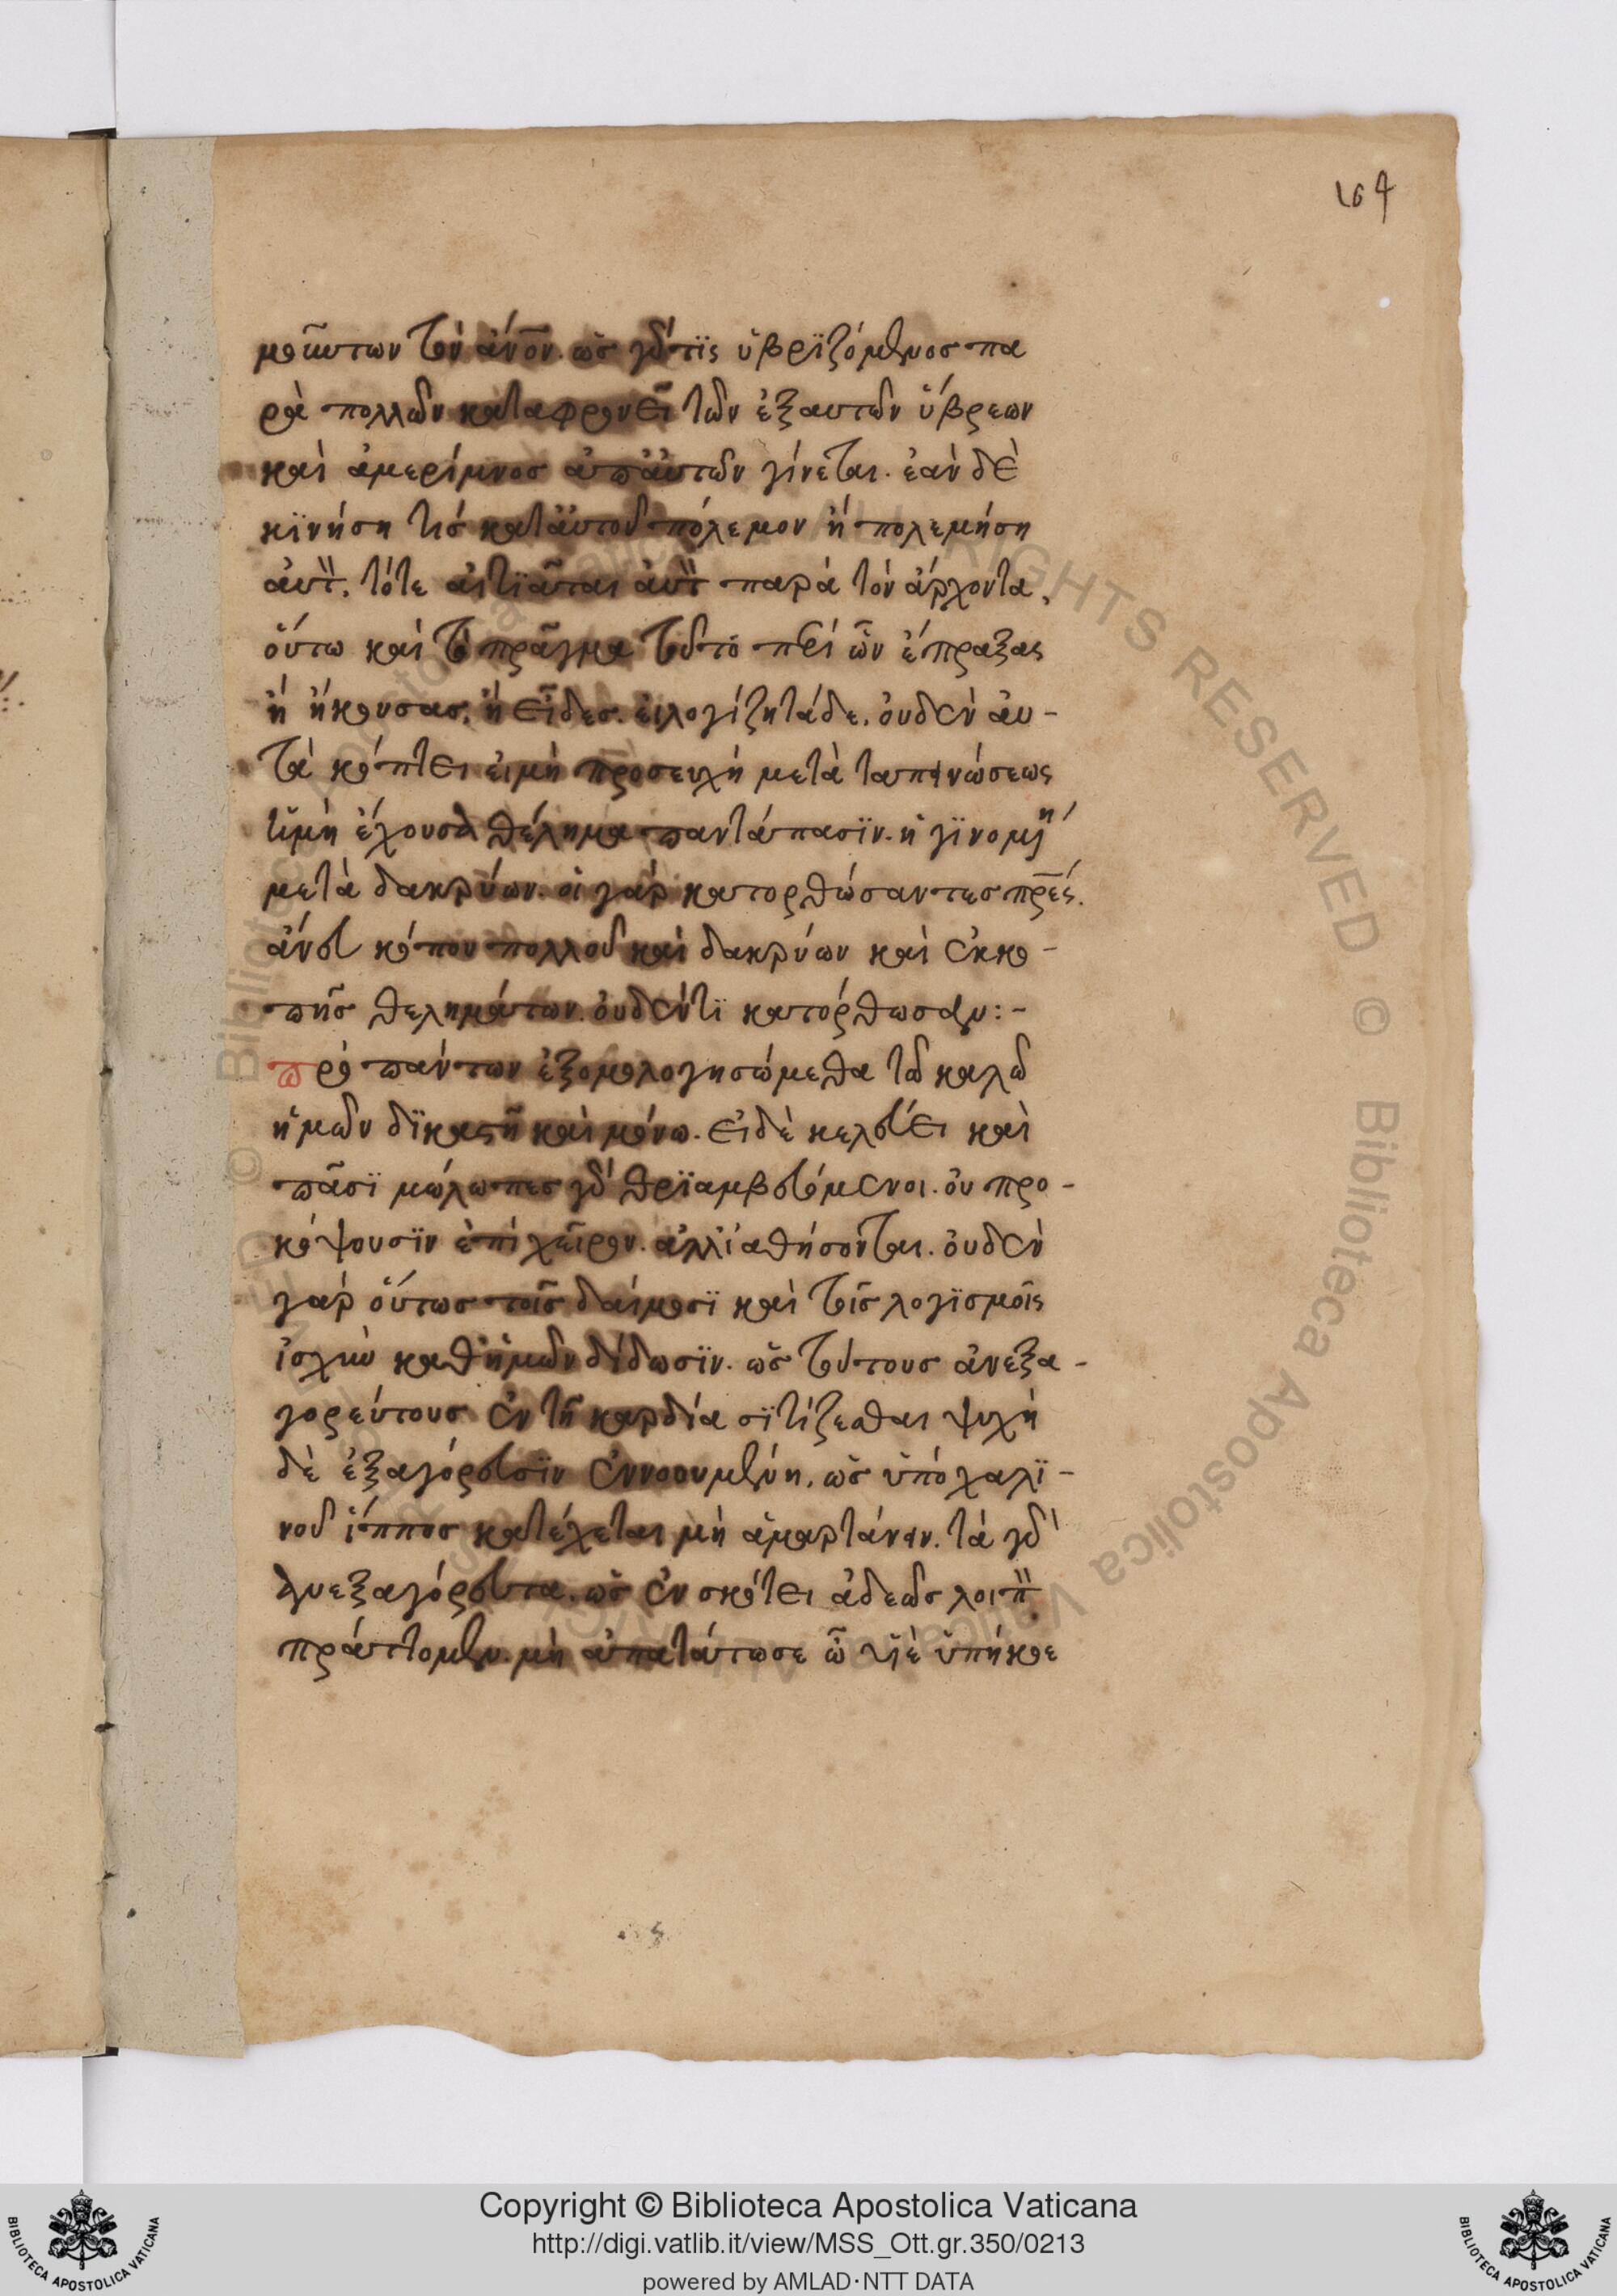 164
μοιώτων τὸν ἀν̅ον. ὡς γὰρ τϊς ὑβρϊζόμενος πα
ρὰ πολλῶν καταφρονεῖ τῶν ἐξαυτῶν ὕβρεων
καὶ ἀμερίμνος ἀπἀυτῶν γίνεται. ἐὰν δὲ
κϊνήση τὶσ κατἀυτοῦ πόλεμον ἢ πολεμήση
ἀυτ̏. τότε αἰτϊᾶται ἀυτ̏ παρὰ τὸν ἄρχοντα,
ὅυτω καὶ τὸ πρᾶγμα τοῦτο περὶ ὧν ἔπραξας
ἢ ἤκουσας, ἢ εἶδες. εἰλογίζητάδε. ὀυδὲν ἀυ-
τὰ κόπτει ἐιμὴ προσευχὴ μετὰ ταπεινώσεως
τϊμὴ ἔχουσα θέλημα παντάπασϊν. ἢ γϊνομένη
μετὰ δακρύων. οἱ γὰρ κατορθώσαντες πρ̅ές.
ἄνευ κόπου πολλοῦ καὶ δακρύων καὶ ἐκκο-
πῆς θελημάτων. ὀυδέντϊ κατόρθωσαν:-
πρὸ πάντων ἐξομολογησώμεθα τῶ καλῶ
ἡμῶν δϊκαστῆ καὶ μόνω. εἰδὲ κελεύει καὶ
πᾶσϊ μώλωπες γὰρ θρϊαμβευόμενοι. ὀυ προ-
κόψουσϊν ἐπὶ χεῖρον. ἀλλϊαθήσονται. ὀυδὲν
γὰρ ὅυτως τοῖς δαίμοσϊ καὶ τοῖς λογϊσμοῖς
ἰσχὺν καθἡμῶν δίδωσϊν. ὡς τούτους ἀνεξα-
γορεύτους ἐν τῆ καρδία σϊτίζεσθαι ψυχὴ
δὲ ἐξαγόρευσϊν ἐννοουμένη, ὡς ὑπὸ χαλϊ-
νοῦ ἵππος κατέχεται μὴ ἁμαρτάνειν. τὰ γὰρ
ἀνεξαγόρευτα. ὡς ἐν σκότει ἀδεῶς λοιπ̏
πράττομεν. μὴ ἀπατάτωσε ὦ υἱὲ ὑπήκοε
Copyright © Biblioteca Apostolica Vaticana
http://digi.vatlib.it/view/MSS_Ott.gr.350/0213
powered by AMLAD·NTT DATA